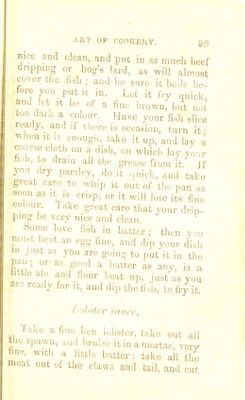 ART OF COOKERY. 99
nice and clean, and put in as much beef
dripping or hog's lard, as will almost
cover the fish ; and be sure it boils be-
fore you put it in. Let it fry quick,
and let it be of a fine brown, but not
too dark a colour. Have your fish slice
ready, and if there is occasion, turn it;
when it is enough, take it up, and lay a
coarse cloth on a dish, on which lay your
fish, to drain all the grease from it. If
you dry parsley, do it quick, and take
great care to whip it out of the pan as
soon as it is crisp, or it will lose its fine
colour. Take great care that your drip-
ping be very nice and clean.
Some love fish in batter ; then you
must beat an egg fine, and dip your dish
in just as you are going to put it in the
pan ; or as good a batter as any, is a
little ale and flour beat up, just as you
are ready for it, and dip the fish, to fry it.
Lobster sauce.
Take a fine hen lobster, take out all
the spawn, and bruise it in a mortar, very
fine, with a little batter : take all the
meat out of the claws and tail, and cut